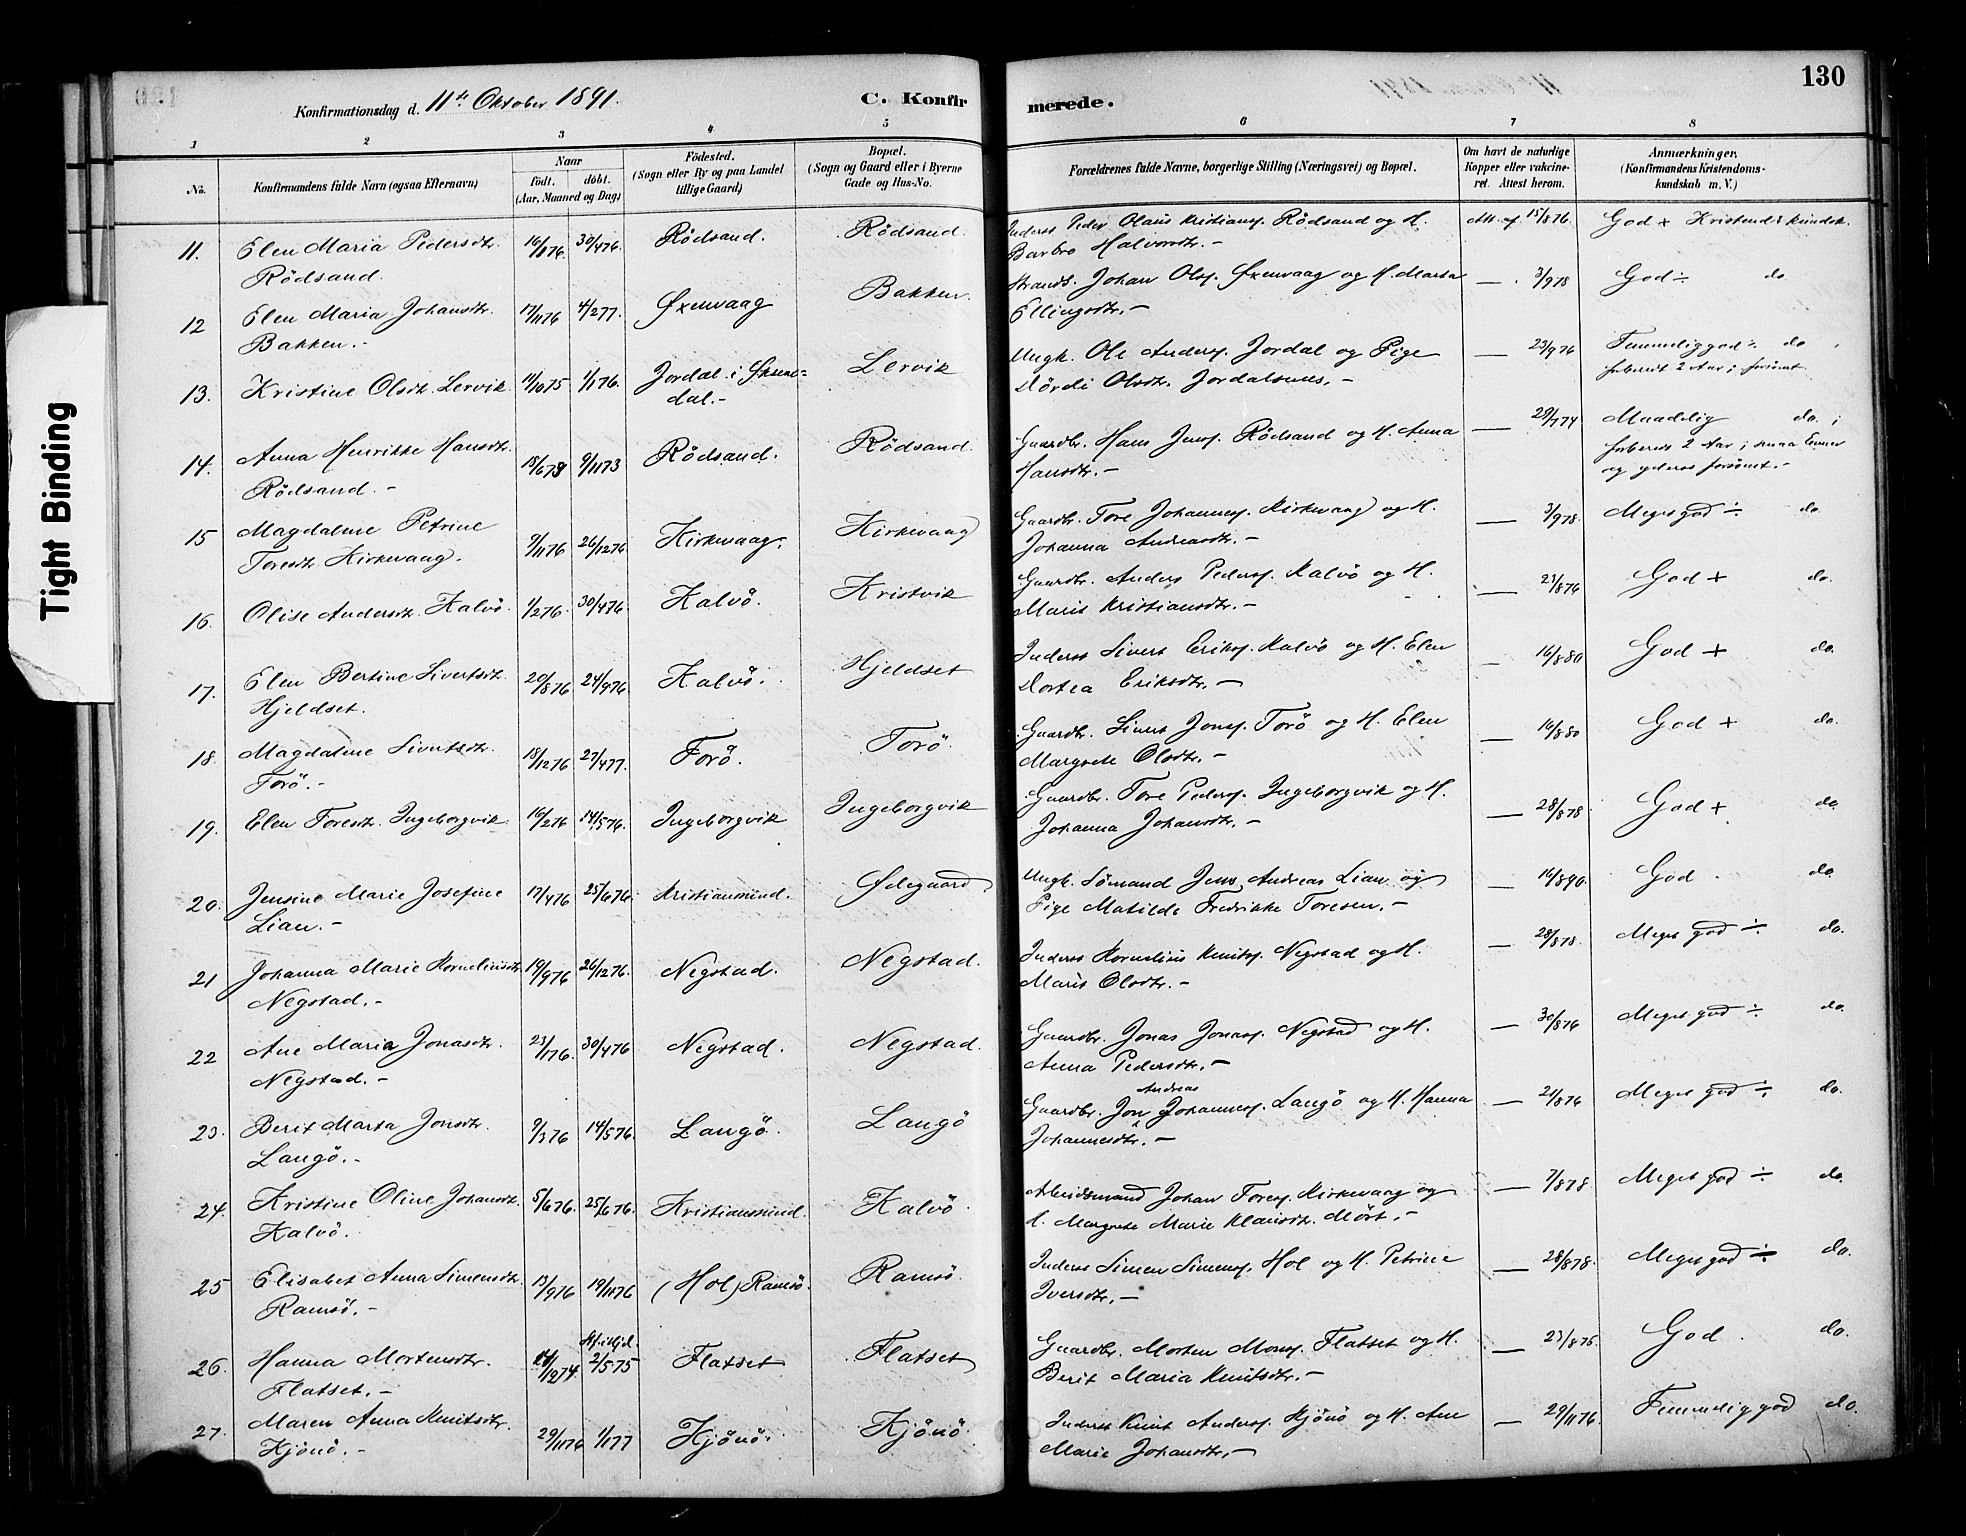 130
Konfirmationsdag d. 11te Oktober 1891.
C. Konfirmerede.
1 2 3 4 5 6 7 8
No.
Konfirmandens fulde Navn (ogsaa Efternavn)
Naar
födt. döbt.
(Aar, Maaned og Dag)
Födested.
(Sogn eller By og paa Landet
tillige Gaard)
Bopæl.
(Sogn og Gaard eller i Byerne
Gade og Hus-No.
Forældrenes fulde Navne, borgerlige Stilling (Næringsvei) og Bopæl.
Om havt de naturlige
Kopper eller vakcine-
ret. Attest herom.
Anmærkninger.
(Konfirmandens Kristendoms-
kundskab m. V.)
11. Elen Maria Pedersdtr. 16/1 76 30/4 76. Rödsand. Rödsand. Inderst Peder Olaus Kristians. Rödsand og H. Att. af 15/8 76. God + Kristendskundsk.
Rödsand. Barbro Halvorsdtr. –
12 Elen Maria Johansdtr. 17/11 76 4/2 77. Øxenvaag Bakken. Strands. Johan Ols. Øxenvaag og H. Marta — 3/9 78 God ÷ do
Bakken. – Ellingsdtr. –
13. Kristine Olsdtr. Lervik 11/10 75 1/1 76. Jordal i Øksen- Lervik Ungk. Ole Anders. Jordal og Pige — 23/9 76 Temmelig god ÷ do
dal. – Dördi Olsdtr. Jordalsnes. – forberedt 2 Aar; forsömt
14. Anna Henrikke Hansdtr. 18/6 73 9/11 73 Rödsand. Rödsand. Gaardbr. Hans Jens. Rödsand og H. Anna — 29/9 74 Maadelig do. ;
Rödsand. – Hansdtr. – forberedt 2 Aar; smaa Evner
og yderst forsömt. –
15 Magdalene Petrine 9/11 76 26/12 76 Kirkevaag. Kirkevaag Gaardbr. Tore Johannes. Kirkevaag og H. — 3/9 78. Meget god ÷ do.
Toresdtr. Kirkevaag. Johanna Andreasdtr. –
16. Olise Andersdtr. Kalvö. 1/2 76. 30/4 76 Kalvö. Kristvik Gaardbr. Anders Peders. Kalvö og H. — 23/8 76 God + do.
Marit Kristiansdtr. –
17. Elen Bertine Sivertsdtr. 20/8 76 24/9 76. Kalvö. Hjeldset Inderst Sivert Eriks. Kalvö og H. Elen — 16/8 80 God + do.
Hjeldset. Dortea Eriksdtr. –
18. Magdalene Sivertsdtr. 18/12 76 27/4 77. Torö. Torö. Gaardbr. Sivert Jons. Torö og H. Elen — 16/8 80 God + do.
Torö. – Margrete Olsdtr. –
19. Elen Toresdtr. Ingeborgvik 16/2 76 14/5 76. Ingeborgvik Ingeborgvik Gaardbr. Tore Peders. Ingeborgvik og H. — 28/8 78. God + do.
Johanna Johansdtr. –
20. Jensine Marie Josefine 17/4 76 25/6 76. Kristiansund. Ødegaard Ungk. Sömand Jens Andreas Lian og — 16/8 90. God do.
Lian. – Pige Matilde Fredrikke Toresen. –
21 Johanna Marie Korneliusdtr. 19/9 76 26/12 76. Negstad. Negstad. Inderst Kornelius Knuts. Negstad og H. — 28/8 78. Meget god ÷ do.
Negstad. – Marit Olsdtr. –
22 Ane Maria Jonasdtr. 23/1 76. 30/4 76 Negstad. Negstad. Gaardbr. Jonas Jonas. Negstad og H. — 30/8 76 Meget god ÷ do.
Negstad. – Anna Pedersdtr. –
23. Berit Marta Jonsdtr. 9/3 76 14/5 76. Langö. Langö Gaardbr. Jon Andreas Johannes. Langö og H. Hanna — 21/8 76 Meget god ÷ do.
Langö. – Johannesdtr. –
24. Kristine Oline Johansdtr. 5/6 76. 25/6 76. Kristiansund. Kalvö. Arbeidsmand Johan Tores. Kirkevaag og — 7/8 78 Meget god ÷ do.
Kalvö. H. Margrete Marie Klausdtr. Mört. –
25 Elisabet Anna Simensdtr. 13/9 76 19/11 76 (Hol) Ramsö. Ramsö. Inderst Simen Simens. Hol og H. Petrine — 28/8 78. Meget god ÷ do.
Ramsö. – Iversdtr. –
26. Hanna Mortensdtr. 14/12 74. 2/5 75 Flatset Flatset Gaardbr. Morten Mons. Flatset og H. — 23/8 75 God. do.
Flatset. – Berit Maria Knutsdtr. –
27. Maren Anna Knutsdtr. 29/11 76 1/1 77 Kjönö. Kjönö. Inderst Knut Anders. Kjönö og H. Ane — 29/11 76. Temmelig god do.
Kjönö. – Marie Johansdtr. –
Tight Binding